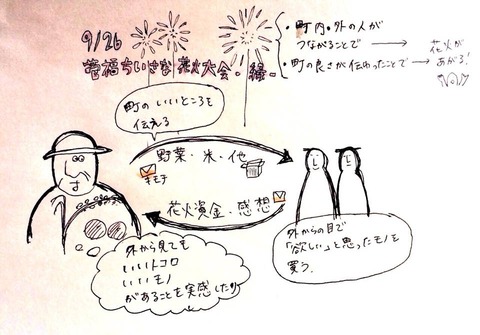 9/26
菅福ちいさな花火大会・縁・
・町内・外の人が
つながることで → 花火が
あがる!
・町の良さが伝わったことで →
町のいいところを
伝える
野菜・米・他
キモチ
花火資金・感想
外から見ても
いいトコロ
いいモノ
があることを実感したり
外からの目で
「欲しい」と思ったモノを
買う.